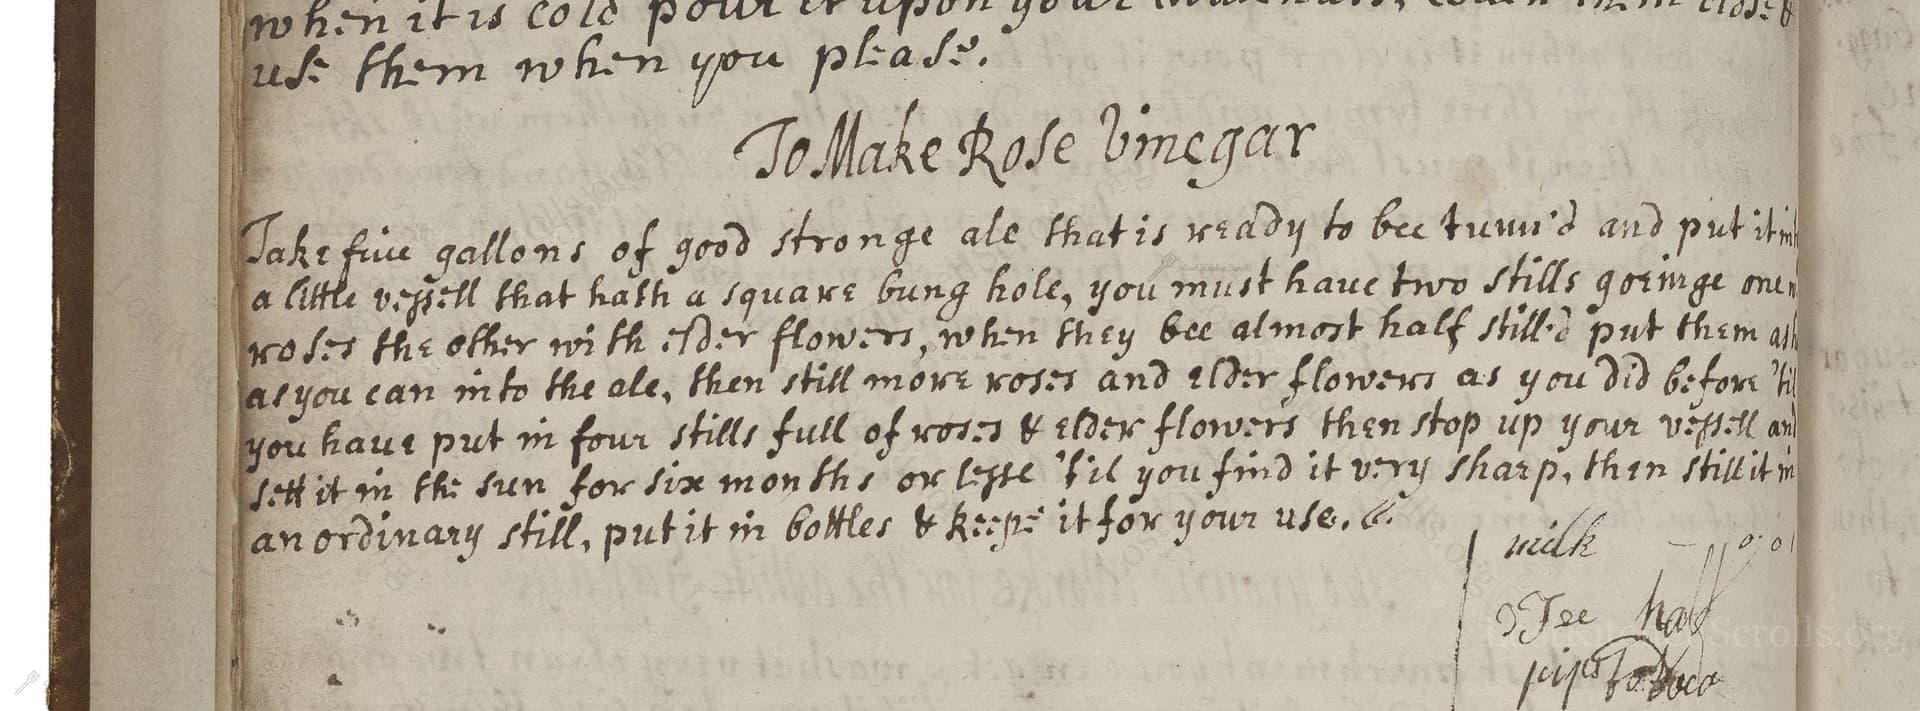 when it is cold pour it upon your
use them when you please.
To Make Rose Vinegar
Take five gallons of good stronge ale that is ready to bee tunn'd and put it int
a little vessell that hath a square bung hole, you must have two stills goeinge one
roses the other with elder flowers, when they bee almost half still'd put them
as you can into the ale, then still more roses and elder flowers as you did before 'til
you have put in four stills full of roses & elder flowers then stop up your vessell and
sett it in the sun for six months or lesse 'til you find it very sharp, then still it in
an ordinary still, put it in bottles & keepe it for your use.
milk
half